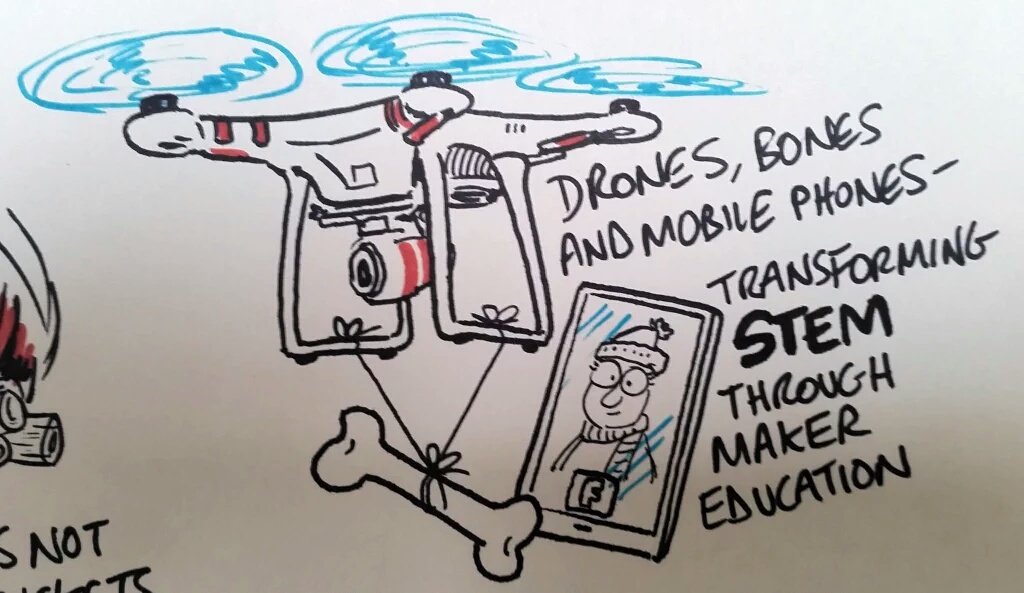 DRONES, BONES
AND MOBILE PHONES-
TRANSFORMING
STEM
THROUGH
MAKER
EDUCATION
F
S NOT